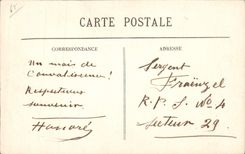 CARTE POSTALE
CORRESPONDANCE
Un mois de
Convalescence!
Respectueux
souvenir
ADRESSE
Sergent
Fraënzel
R. P. S. No 4
Secteur 29.